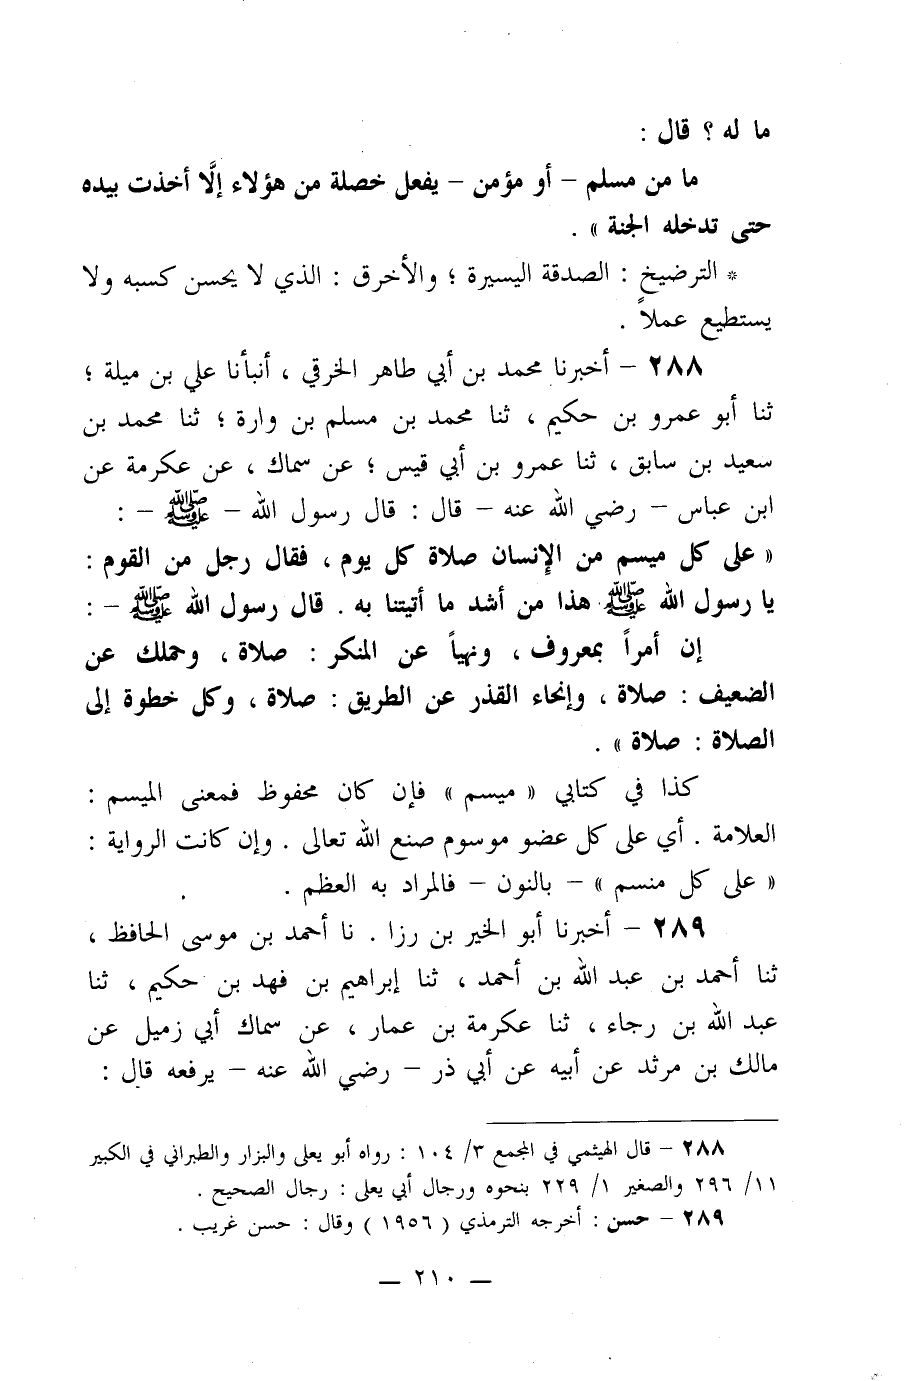 ما له ؟ قال :
ما من مسلم – أو مؤمن – يفعل خصلة من هؤلاء إلَّا أخذت بيده
حتى تدخله الجنة » .
* الترضيخ : الصدقة اليسيرة ؛ والأخرق : الذي لا يحسن كسبه ولا
يستطيع عملاً .
٢٨٨ – أخبرنا محمد بن أبي طاهر الخرقي ، أنبأنا علي بن ميلة ؛
ثنا أبو عمرو بن حكيم ، ثنا محمد بن مسلم بن وارة ؛ ثنا محمد بن
سعيد بن سابق ، ثنا عمرو بن أبي قيس ؛ عن سماك ، عن عكرمة عن
ابن عباس – رضي الله عنه – قال : قال رسول الله – ﷺ – :
« على كل ميسم من الإنسان صلاة كل يوم ، فقال رجل من القوم :
يا رسول الله ﷺ هذا من أشد ما أتيتنا به . قال رسول الله ﷺ – :
إن أمراً بمعروف ، ونهياً عن المنكر : صلاة ، وحملك عن
الضعيف : صلاة ، وإنحاء القذر عن الطريق : صلاة ، وكل خطوة إلى
الصلاة : صلاة » .
كذا في كتابي « ميسم » فإن كان محفوظ فمعنى الميسم :
العلامة . أي على كل عضو موسوم صنع الله تعالى . وإن كانت الرواية :
« على كل منسم » – بالنون – فالمراد به العظم .
٢٨٩ – أخبرنا أبو الخير بن رزا . نا أحمد بن موسى الحافظ ،
ثنا أحمد بن عبد الله بن أحمد ، ثنا إبراهيم بن فهد بن حكيم ، ثنا
عبد الله بن رجاء ، ثنا عكرمة بن عمار ، عن سماك أبي زميل عن
مالك بن مرثد عن أبيه عن أبي ذر – رضي الله عنه – يرفعه قال :
٢٨٨ – قال الهيثمي في المجمع ٣/ ١٠٤ : رواه أبو يعلى والبزار والطبراني في الكبير
١١/ ٢٩٦ والصغير ١/ ٢٢٩ بنحوه ورجال أبي يعلى : رجال الصحيح .
٢٨٩ – حسن : أخرجه الترمذي ( ١٩٥٦ ) وقال : حسن غريب .
— ٢١٠ —